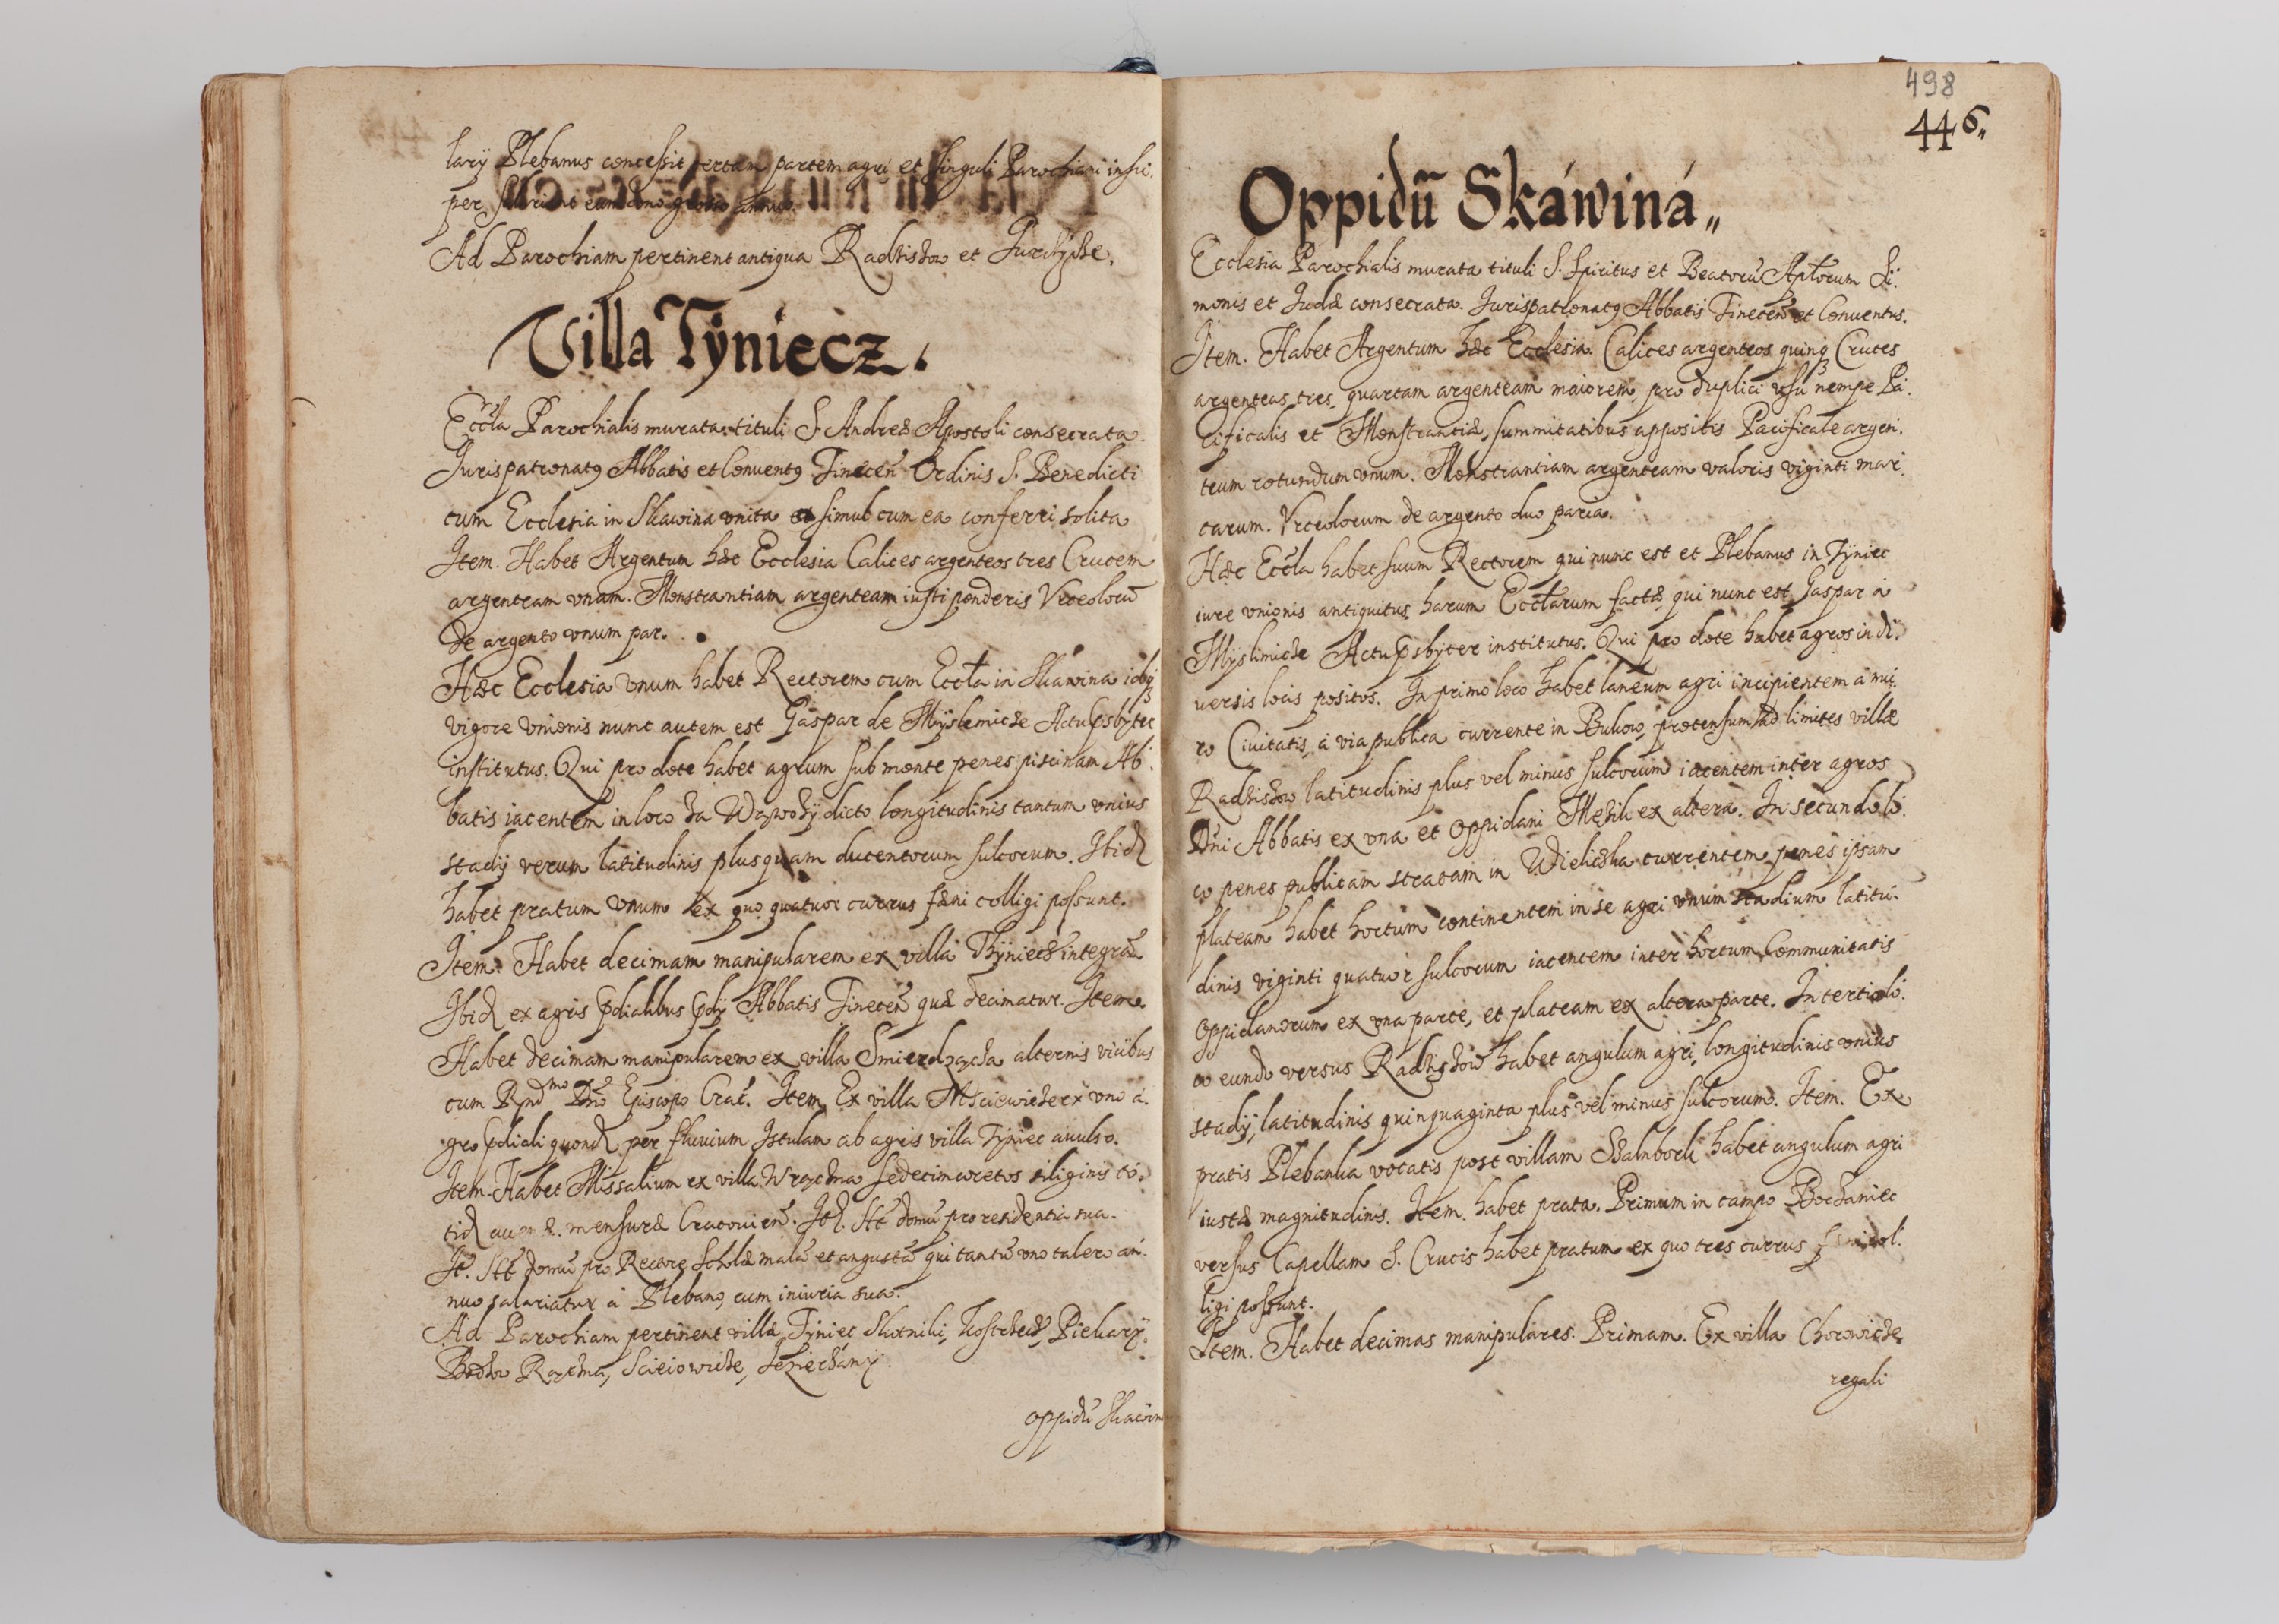 larÿ Plebanus concessit certam partem agri et singuli Parochiani insu:
per
Ad Parochiam pertinent antiqua Radzishow et Jurczÿcze.
Villa Tÿniecz.
Eccla Parochialis murata tituli S. Andreæ Apostoli consecrata.
Jurispatronatꝯ Abbatis et Conventꝯ Tinecen̄ Ordinis S. Benedicti
cum Ecclesia in Skawina vnita et simul cum ea conferri solita
Item. Habet Argentum hæc Ecclesia Calices argenteos tres Crucem
argenteam vnam. Monstrantiam argenteam iusti ponderis Vrceolorū
de argento vnum par.
Hæc Ecclesia vnum habet Rectorem cum Eccła in Skawina idqꝫ
vigore vnionis nunc autem est Gaspar de Mÿslemicze Actu Psbÿter
institutus. Qui pro dote habet agrum sub monte penes piscinam Ab:
batis iacentem in loco za Wąwozÿ dicto longitudinis tantum vnius
stadÿ verum latitudinis plusquam ducentorum sulcorum. Ibid
habet pratum vnum ex quo quatuor currus fæni colligi possunt.
Item. Habet decimam manipularem ex villa Thÿniecz integrā
Ibid ex agris p̄dialibus p̄dÿ Abbatis Tinecen̄ quæ decimatur. Item.
Habet decimam manipularem ex villa Smierdzącza alternis vicibus
cum Rnd^mo Dn̄o Episcopo Crac̄. Item Ex villa Msciewicze ex vno a:
gro p̄diali quond per fluuium Istulam ab agris villa Tÿniec auulso.
Item. Habet Missalium ex villa Wrączna sedecim coretos siliginis to:
tid auenæ mensuræ Cracouien̄. Itd. Ht̄ domū pro residentia sua.
It. Ht̄ domū pro Rectore Scholæ malā et angustā qui tantū vno talero an:
nuo salariatur a Plebano, cum iniuria sua.
Ad Parochiam pertinent villæ Tÿniec Skotniki, Kostrzecz, Piekarÿ.
Rączna, Scieiowicze, Jeziorzanÿ.
oppidū Skawin
498
446„
Oppidū Skáwiná„
Ecclesia Parochialis murata tituli S. Spiritus et Beatorū Apłorum Si:
monis et Judæ consecrata. Jurispatronatꝯ Abbatis Tinecen̄ et Conuentus.
Item. Habet Argentum hæc Ecclesia. Calices argenteos quinqꝫ Cruces
argenteas tres, quartam argenteam maiorem, pro duplici vsu nempe Pa:
cificalis et Monstrantiæ, summitatibus appositis Pacificale argen:
teum rotundum vnum. Monstrantiam argenteam valoris viginti mar:
carum. Vrceolorum de argento duo paria.
Hæc Eccla habet suum Rectorem qui nunc est et Plebanus in Tÿniec
iure vnionis antiquitus harum Eccłarum factæ, qui nunc est Gaspar a
Mÿslimicze Actu Psbÿter institutus. Qui pro dote habet agros in di:
uersis locis positos. In primo loco habet laneum agri incipientem a mu:
ro Ciuitatis, a via publica currente in Bukow, protensum ad limites villæ
Radzishow latitudinis plus vel minus sulcorum iacentem inter agros
Dn̄i Abbatis ex vna et oppidani ex altera. In secundo lo:
co penes publicam stratam in Wieliczka currentem, penes ipsam
plateam habet hortum continentem in se agri vnum stadium latitu:
dinis viginti quatuor sulcorum iacentem inter hortum Communitatis
oppidanorum ex vna parte, et plateam ex altera parte. In tertio lo:
co eundo versus Radzishow habet angulum agri, longitudinis vnius
stadÿ, latitudinis quinquaginta plus vel minus sulcorum. Item. Ex
pratis Plebanka vocatis post villam habet angulum agri
iustæ magnitudinis. Item. habet prata. Primum in campo Borzaniec
versus Capellam S. Crucis habet pratum ex quo tres currus fæni col:
ligi possunt.
Item. Habet decimas manipulares. Primam. Ex villa Chorowicze
regali